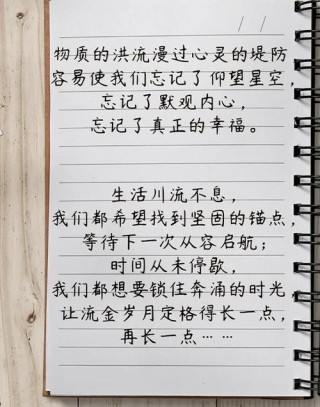 物质的洪流漫过心灵的堤防
容易使我们忘记了仰望星空,
忘记了默观内心,
忘记了真正的幸福。
生活川流不息,
我们都希望找到坚固的锚点,
等待下一次从容启航;
时间从未停歇,
我们都想要锁住奔涌的时光,
让流金岁月定格得长一点,
再长一点……